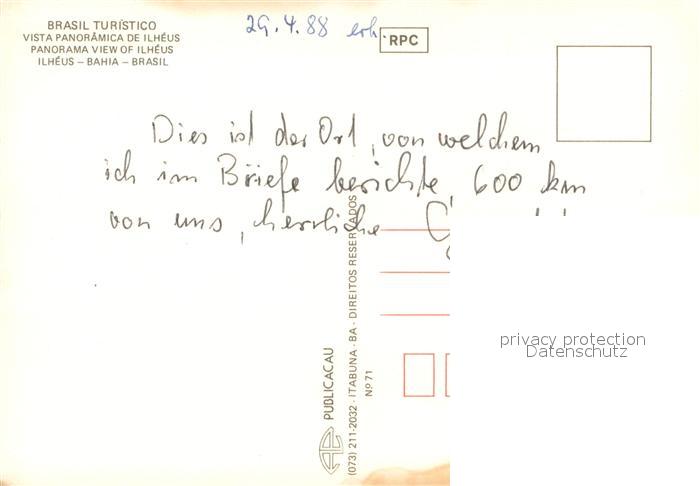 BRASIL TURÍSTICO
VISTA PANORÂMICA DE ILHÉUS
PANORAMA VIEW OF ILHÉUS
ILHÉUS – BAHIA – BRASIL
29.4.88 erh.
RPC
Dies ist der Ort, von welchem
ich im Briefe berichte, 600 km
von uns, herrliche
PUBLICACAU
(073) 211-2032 - ITABUNA - BA - DIREITOS RESERVADOS
Nº 71
privacy protection
Datenschutz